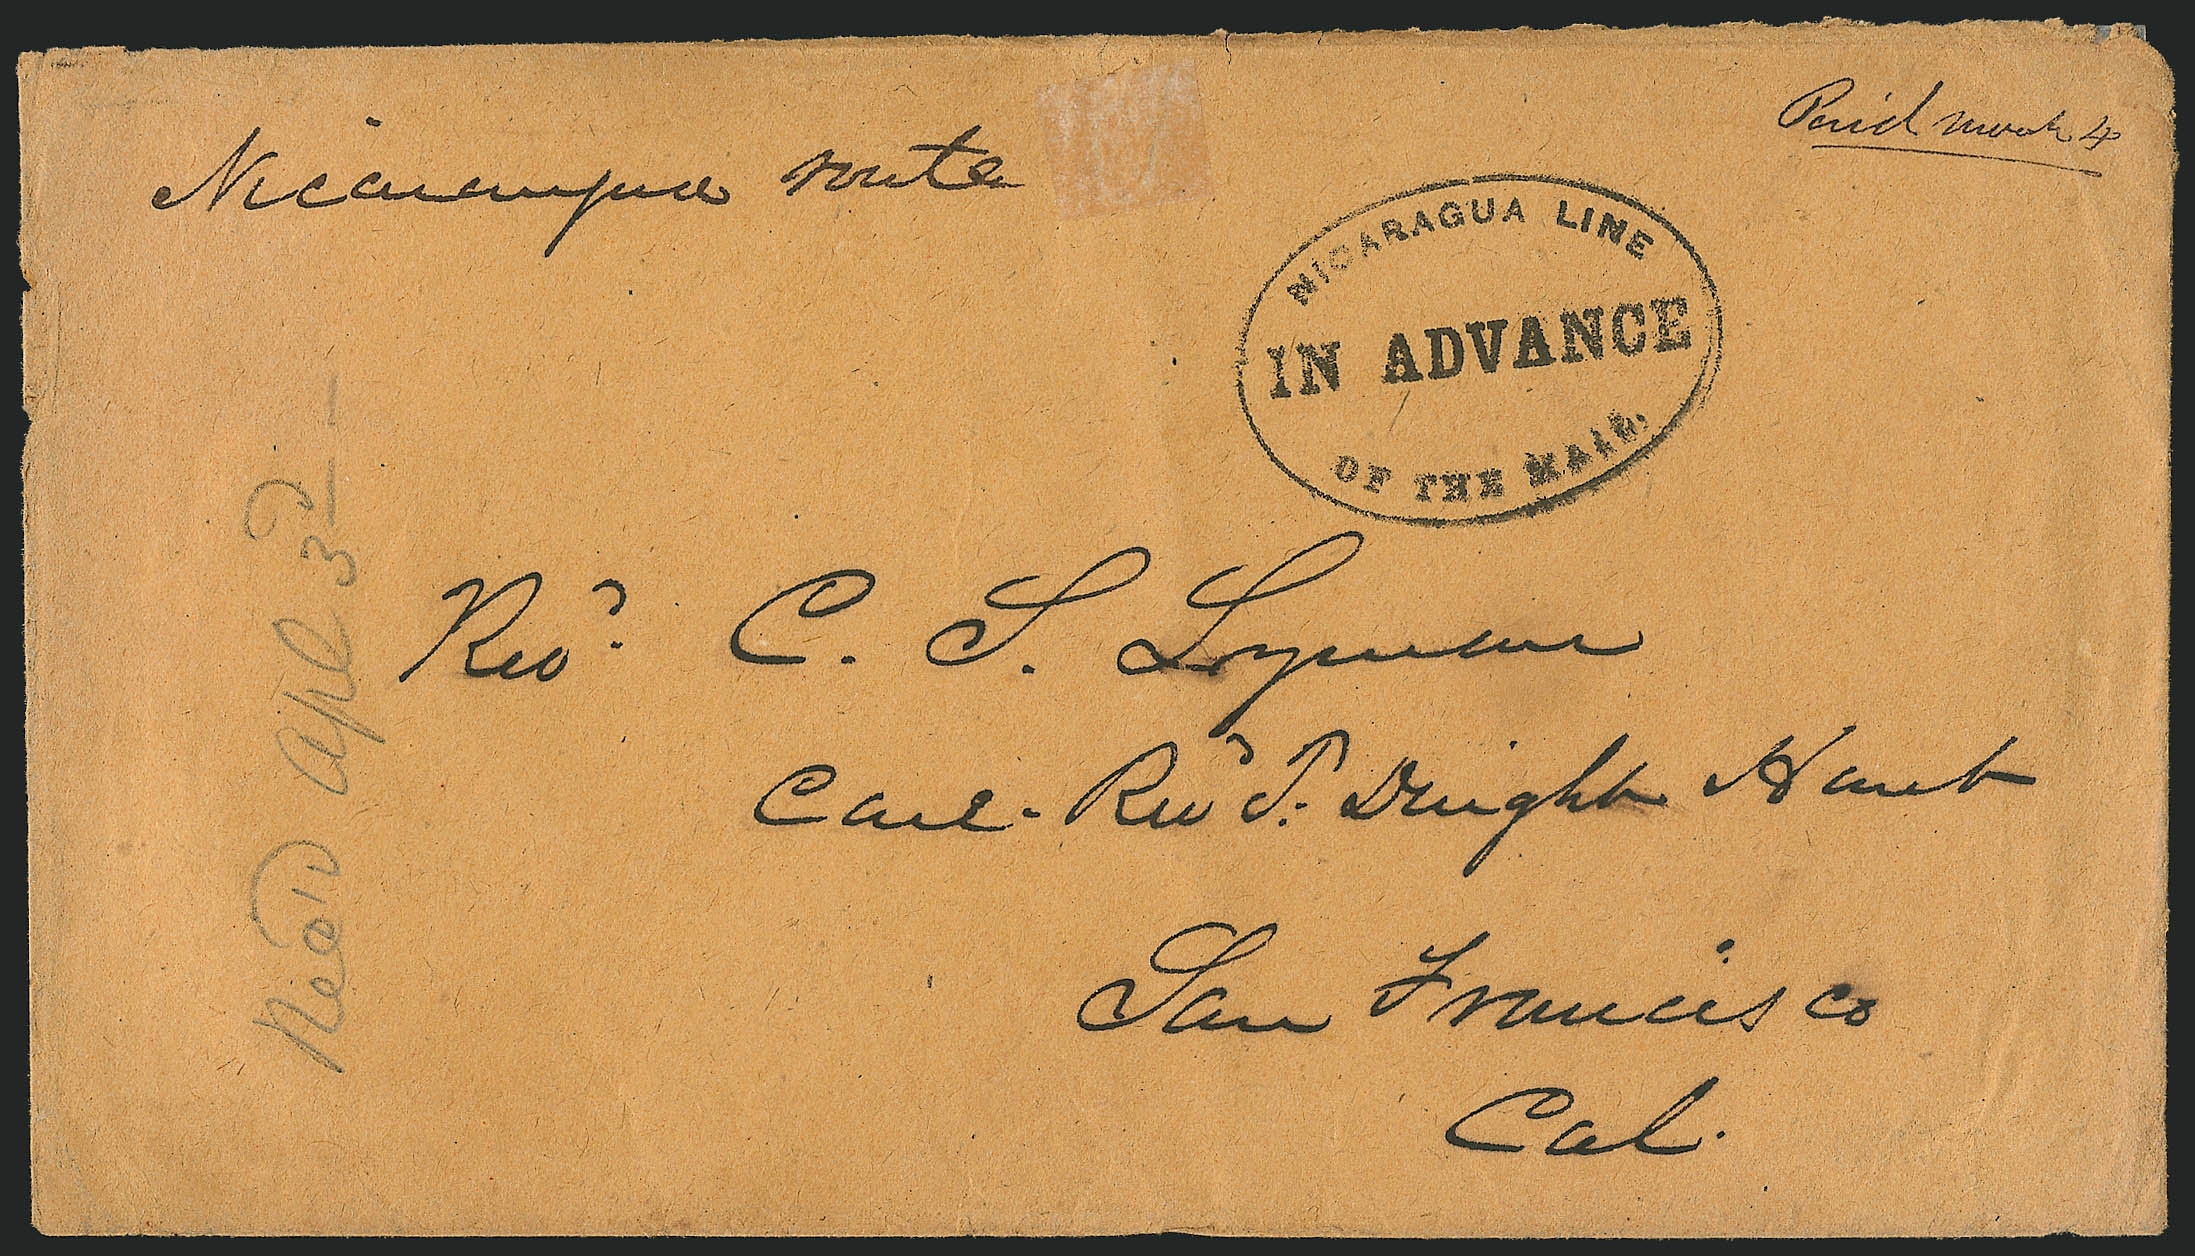 Paid March 4
Nicaragua route
NICARAGUA LINE
IN ADVANCE
OF THE MAIL.
Rev.d C. S. Lyman
Care - Revd T. Dwight Hunt
San Francisco
Cal.
Recd Apl 3d